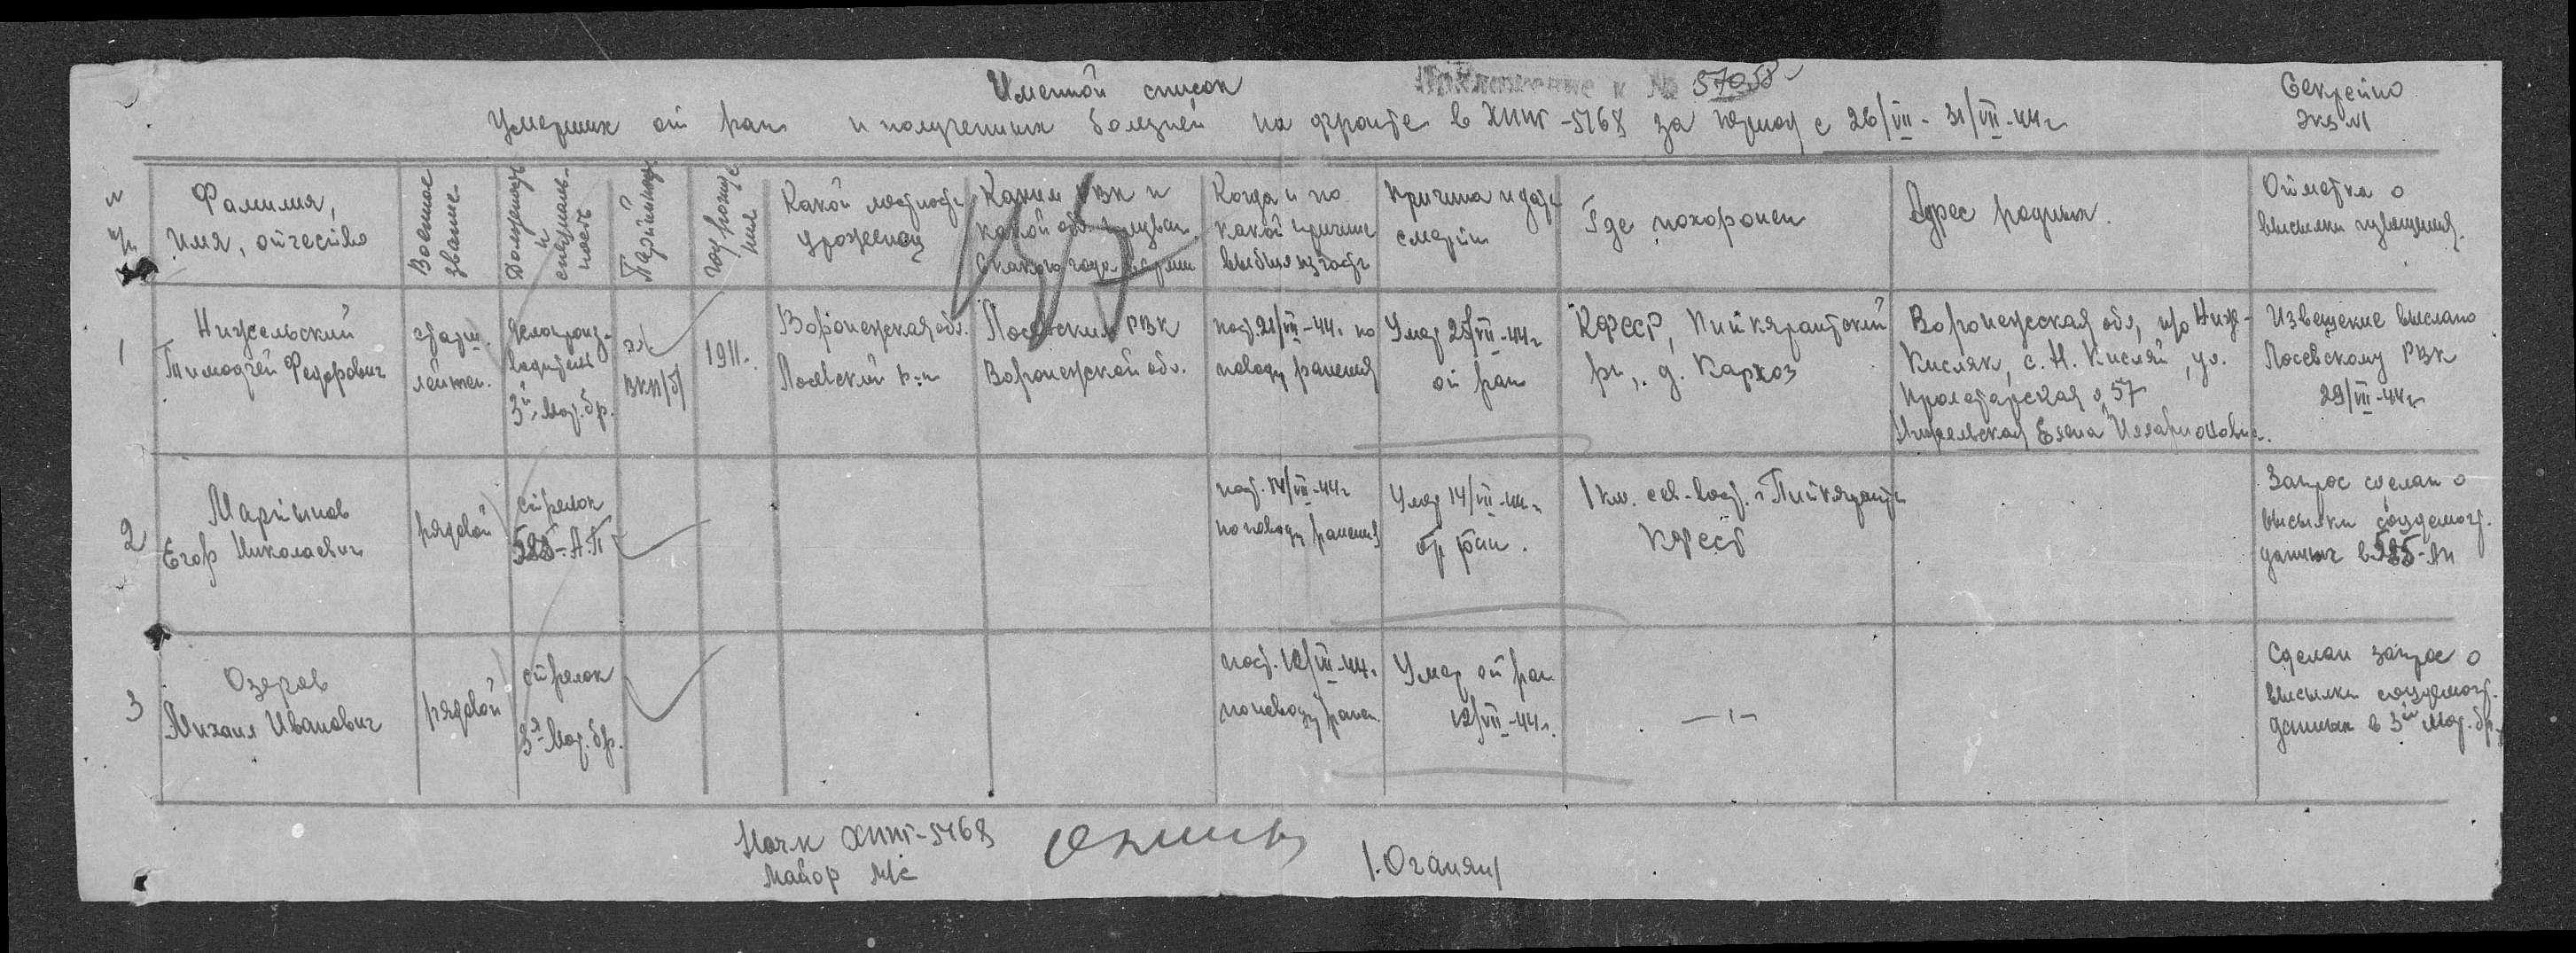 Секретно
Экз №1
Приложение к № 57058
Именной список
Умерших от ран и полученных болезней на фронте в ХППГ-5168 за период с 26/VII - 31/VII-44г
№ п/п
Фамилия,
имя, отчество
Военное
звание
Должность
и
специаль-
ность
Партийность
год рожде
ния
Какой местности
уроженец
Каким РВК и
какой обл. призван.
С какого года в армии
Когда и по
какой причине
выбыл из части
Причина и дата
смерти
Где похоронен
Адрес родных.
Отметка о
высылки извещения.
1
Нижельский
Тимофей Федорович
старш.
лейтен.
делопроиз-
водитель
3й Мор. бр.
ВКП/б/
1911г.
Воронежская обл.
Лосевский р-н
Лосевским РВК
Воронежской обл.
пост. 21/VII-44г. по
поводу ранения
Умер 27/VII-44г
от ран
КФССР, Питкярантский
рн, д. Кархоз
Воронежская обл, п/о Ниж-
Кисляй, с. Н. Кисляй, ул.
Пролетарская 57
Нижельская Елена Илларионовна.
Извещение выслано
Лосевскому РВК
29/VII-44г
2
Мартынов
Егор Николаевич
рядовой
стрелок
А.П
пост. 14/VII-44г
по поводу ранения
Умер 14/VII-44г.
от ран.
1 км. сев-вост. г Питкяранта
КФССР
Запрос сделан о
высылки соцдемогр.
данных в
3
Озеров
Михаил Иванович
рядовой
стрелок
3я Мор. бр.
пост. 12/VII-44г.
по поводу ранен.
Умер от ран
12/VII-44г.
-"-
Сделан запрос о
высылки соцдемогр.
данных в 3й Мор. бр.
Нач-к ХППГ-5168
Майор м/с
/.Оганян/